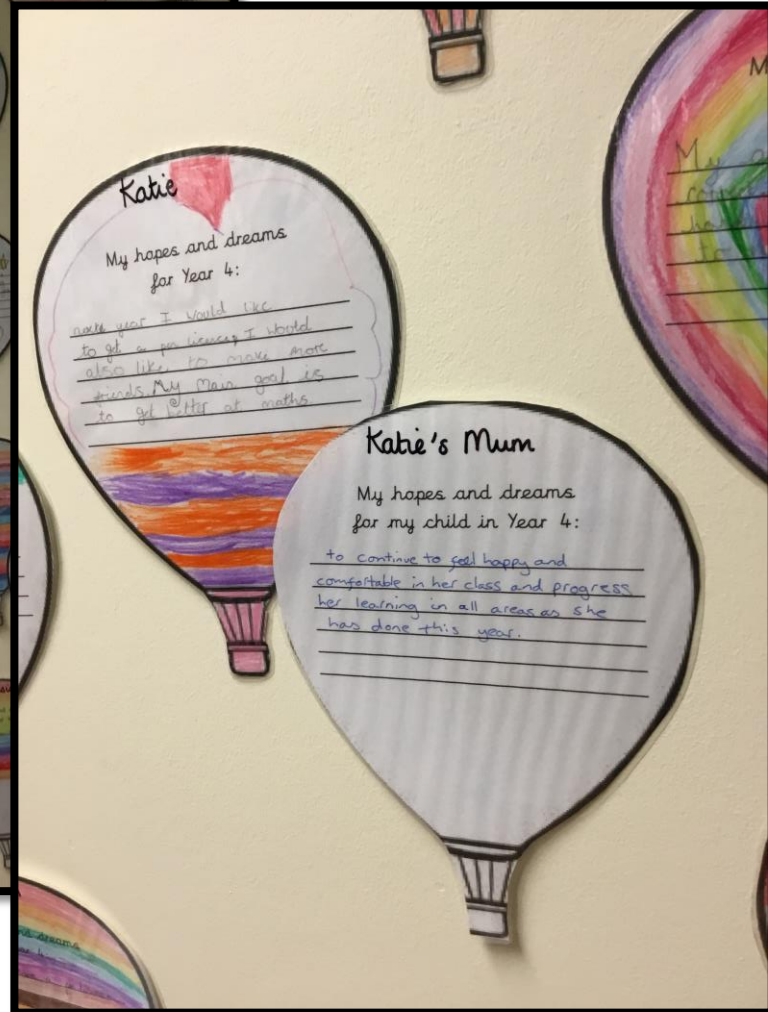 Katie
My hopes and dreams
for Year 4:
next year I would like
to get a pen licience, I would
also like to make more
friends. My main goal is
to get better at maths.
Katie's Mum
My hopes and dreams
for my child in Year 4:
to continue to feel happy and
comfortable in her class and progress
her learning in all areas as she
has done this year.
M
My